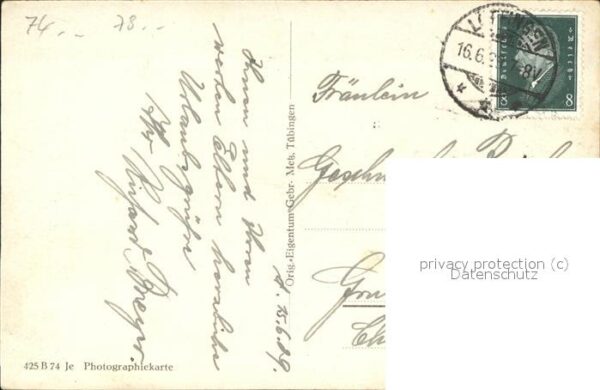 74.- 78.-
Ihnen und Ihren
werten Eltern herzliche
Urlaubsgrüße
Ihr Richard Breyer.
A. 15.6.29.
Orig.-Eigentum Gebr. Metz, Tübingen
Fräulein
16.6.
Deutsches Reich
8 8
privacy protection (c)
Datenschutz
425 B 74 Je Photographiekarte